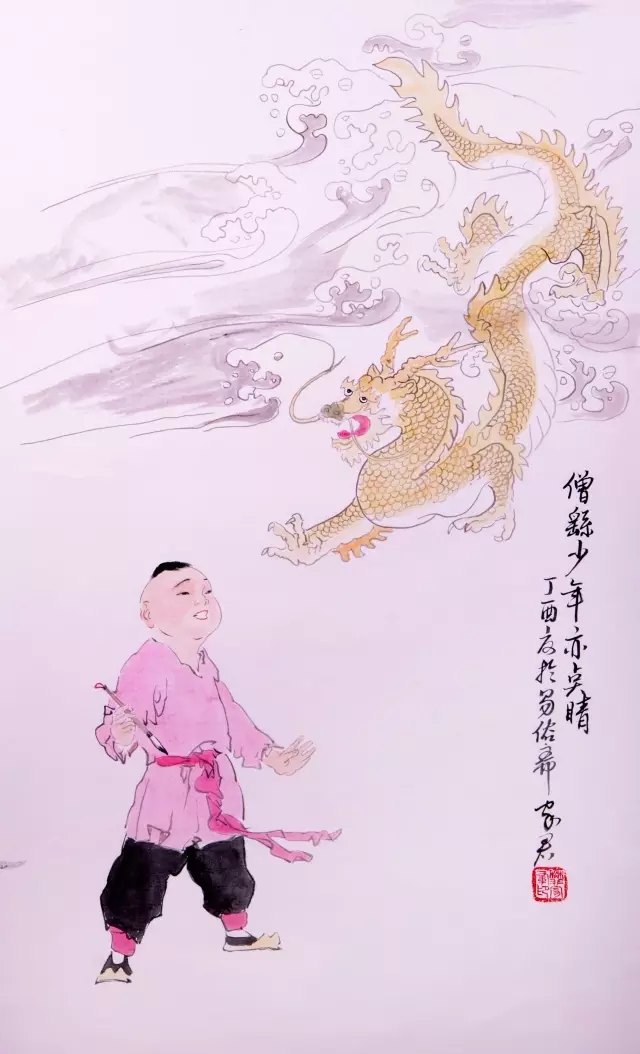 僧繇少年亦点睛
丁酉夏於易佑斋
家君